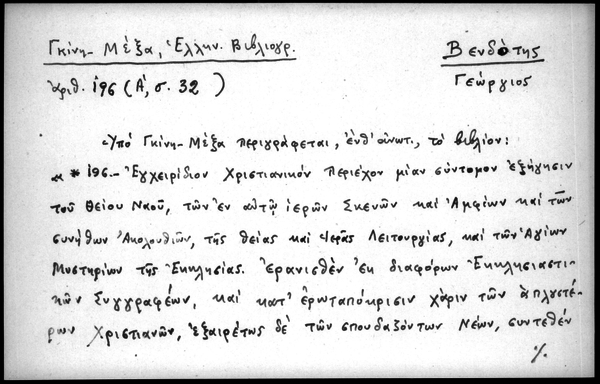 Γκίνη - Μέξα, Ἑλλην. Βιβλιογρ.
ἀριθ. 196 (Α΄, σ. 32)
Βενδότης
Γεώργιος
Ὑπό Γκίνη - Μέξα περιγράφεται, ἐνθ' ἀνωτ., τό βιβλίον:
« * 196.- Ἐγχειρίδιον Χριστιανικόν περιέχον μίαν σύντομον ἐξήγησιν
τοῦ θείου Ναοῦ, τῶν ἐν αὐτῷ ἱερῶν Σκευῶν καί Ἀμφίων καί τῶν
συνήθων Ἀκολουθιῶν, τῆς θείας καί Ἱερᾶς Λειτουργίας, καί τῶν Ἁγίων
Μυστηρίων τῆς Ἐκκλησίας. Ἐρανισθέν ἐκ διαφόρων Ἐκκλησιαστι-
κῶν Συγγραφέων, καί κατ' ἐρωταπόκρισιν χάριν τῶν ἁπλυστέ-
ρων Χριστιανῶν, ἐξαιρέτως δέ τῶν σπουδαζόντων Νέων, συντεθέν
%.